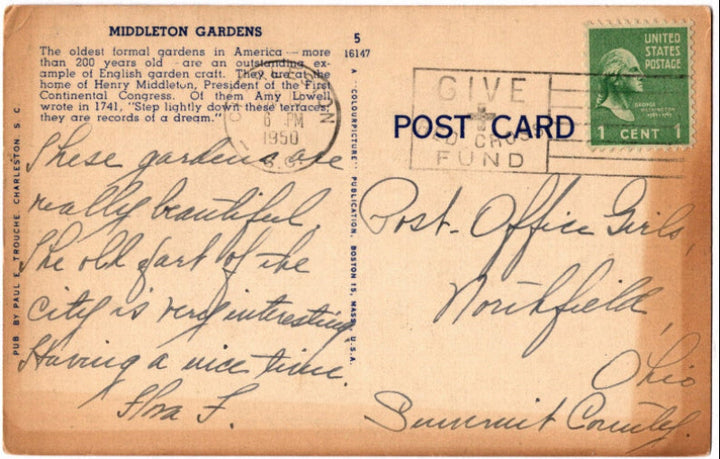 MIDDLETON GARDENS
The oldest formal gardens in America — more
than 200 years old - are an outstanding ex-
ample of English garden craft. They are at the
home of Henry Middleton, President of the First
Continental Congress. Of them Amy Lowell
wrote in 1741, "Step lightly down these terraces,
they are records of a dream."
These gardens are
really beautiful.
The old part of the
city is very interesting.
Having a nice time.
Flora F.
PUB. BY PAUL E. TROUCHE, CHARLESTON, S. C.
5
16147
A "COLOURPICTURE" PUBLICATION, BOSTON 15, MASS., U.S.A.
6 PM
1950
S.C.
GIVE
D CROS
FUND
POST CARD
UNITED
STATES
POSTAGE
GEORGE
WASHINGTON
1 CENT 1
Post-Office Girls,
Northfield,
Ohio
Summit County.